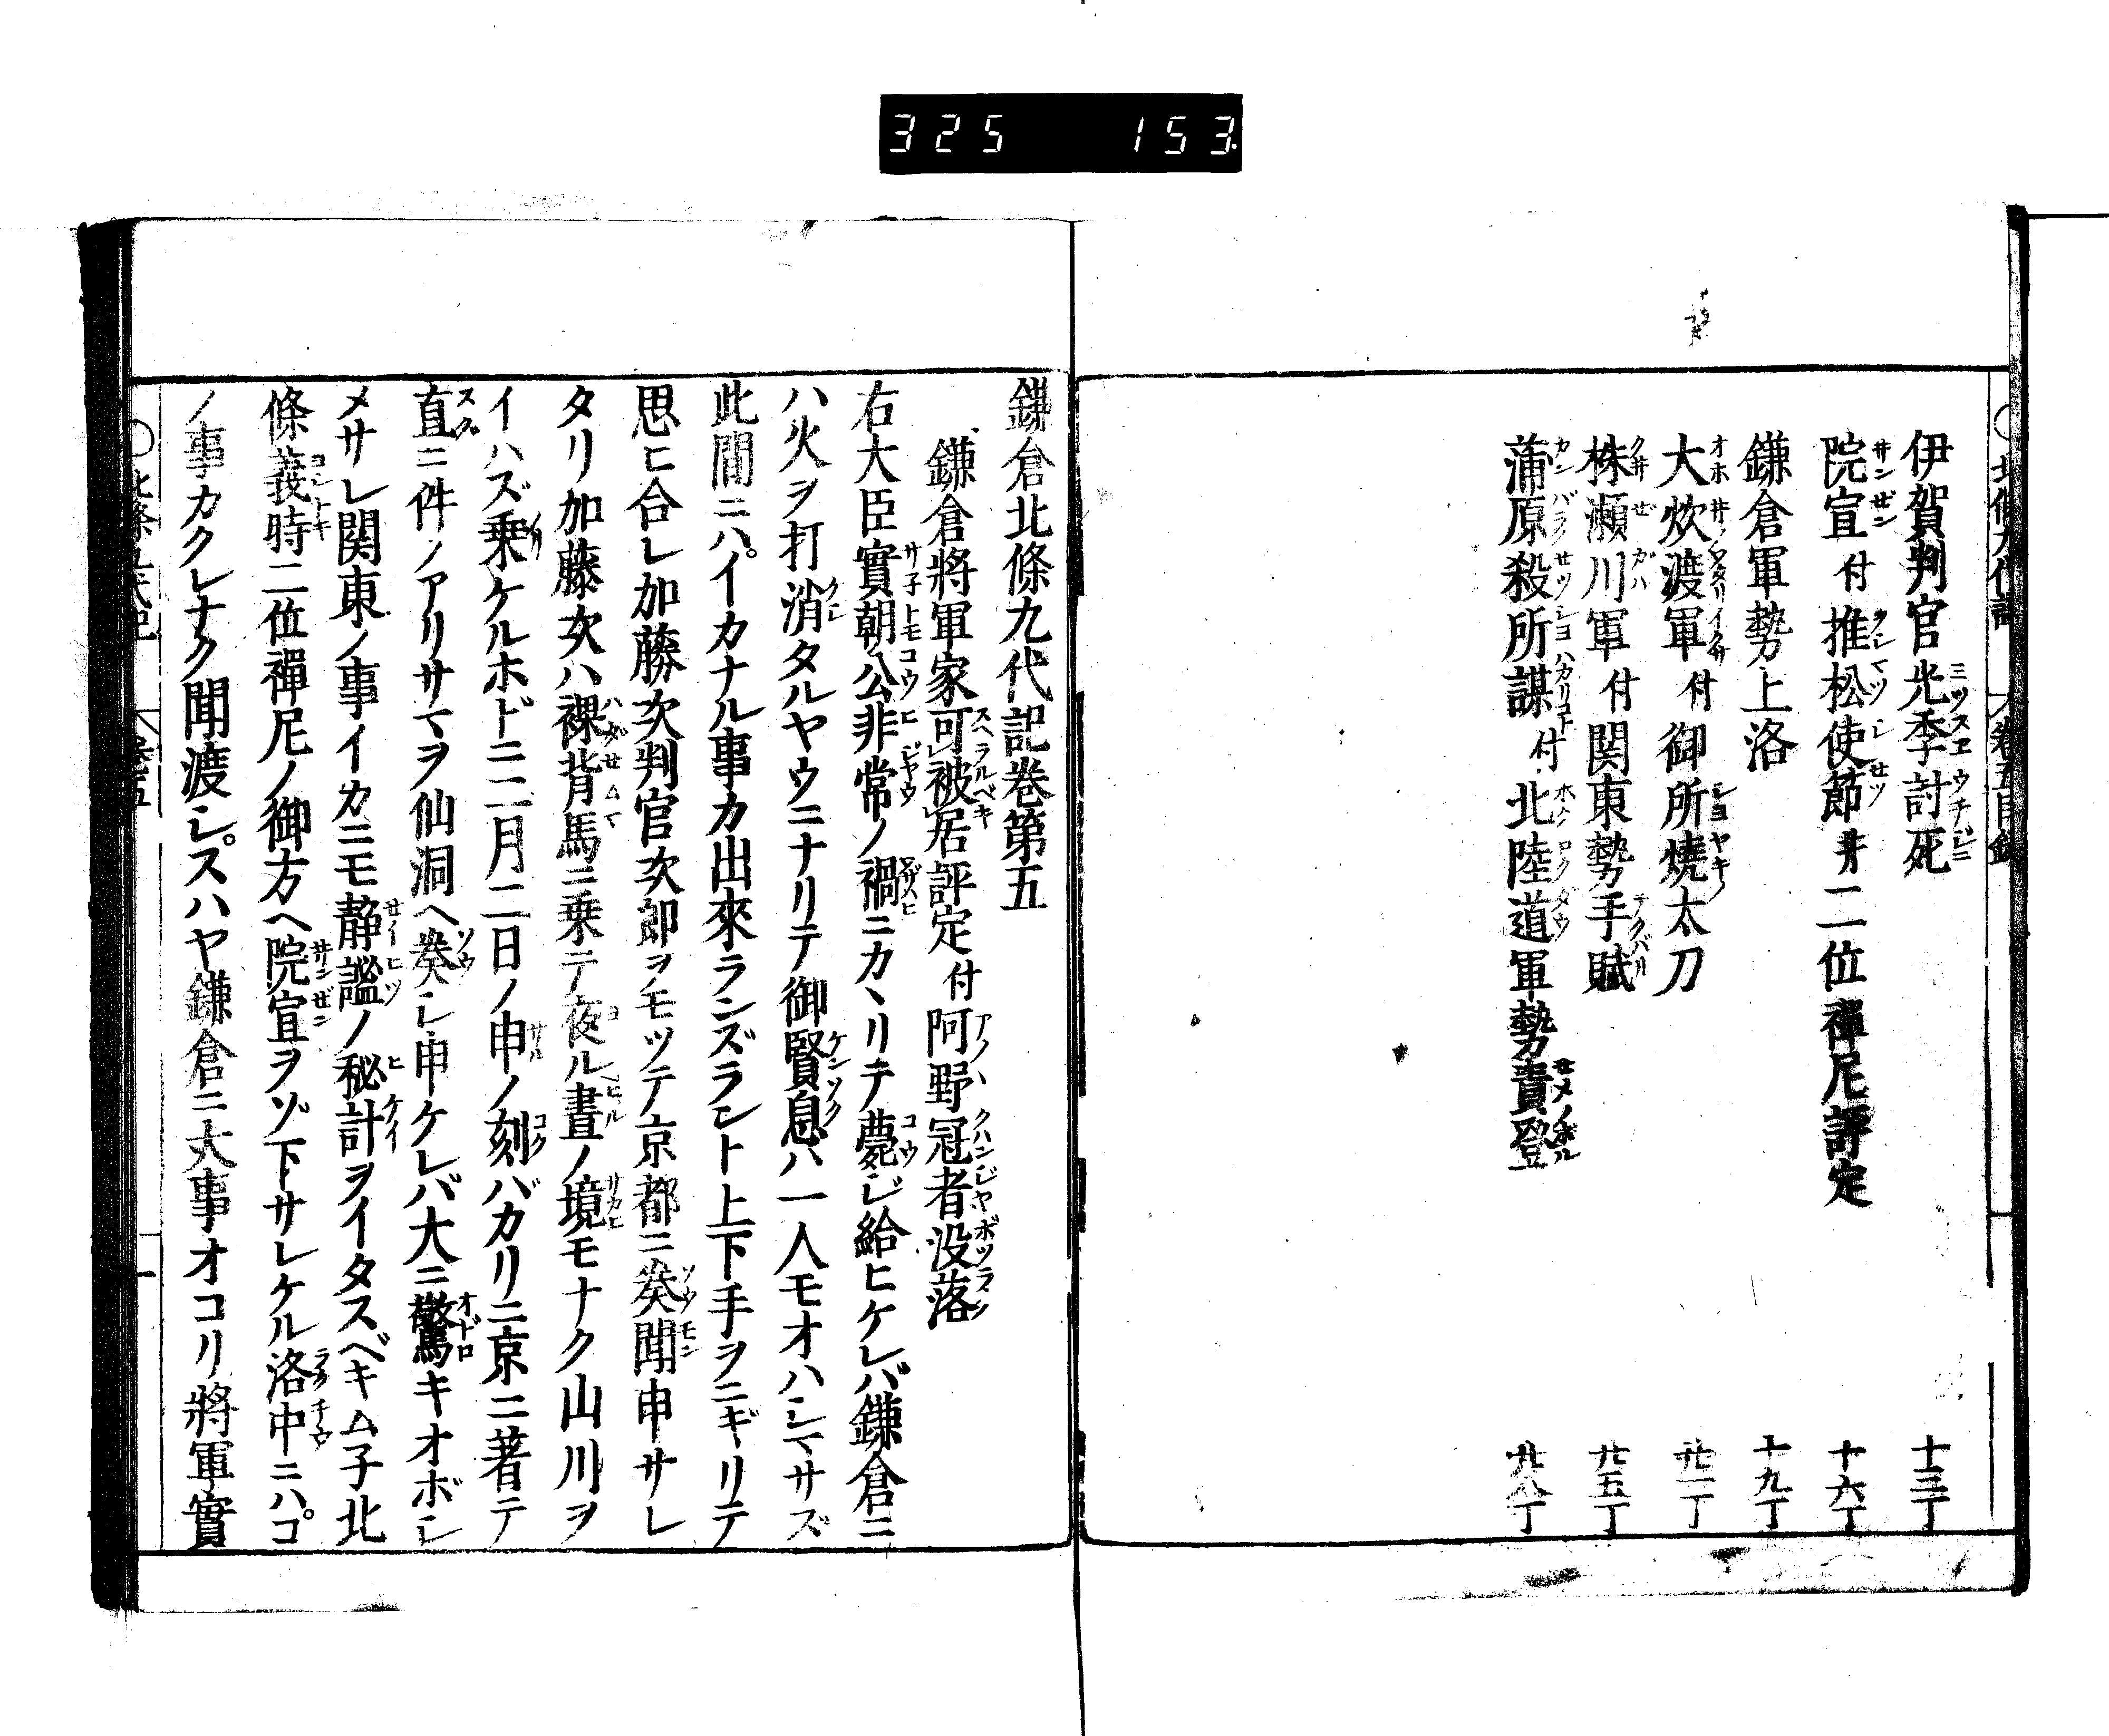 325 153
北條九代記 卷五目録
伊賀判官光季討死 十三丁
院宣付推松使節并二位禪尼評定 十六丁
鎌倉軍勢上洛 十九丁
大炊渡軍付御所燒太刀 廿一丁
株瀬川軍付関東勢手賦 廿五丁
蒲原殺所謀付北陸道軍勢責登 廿八丁
鎌倉北條九代記卷第五
鎌倉將軍家可被居評定付阿野冠者没落
右大臣實朝公非常ノ禍ニカヽリテ薨ジ給ヒケレバ鎌倉ニ
ハ火ヲ打消タルヤウニナリテ御賢息ハ一人モオハシマサズ
此間ニハイカナル事カ出來ランズラント上下手ヲニギリテ
思ヒ合レ加藤次判官次郎ヲモツテ京都ニ奏聞申サレ
タリ加藤次ハ裸背馬ニ乗テ夜ル晝ノ境モナク山川ヲ
イハズ乗ケルホドニ二月二日ノ申ノ刻バカリニ京ニ著テ
直ニ件ノアリサマヲ仙洞ヘ奏シ申ケレバ大ニ驚キオボシ
メサレ関東ノ事イカニモ静謐ノ秘計ヲイタスベキムネ北
條義時二位禪尼ノ御方ヘ院宣ヲゾ下サレケル洛中ニハコ
ノ事カクレナク聞渡シスハヤ鎌倉ニ大事オコリ將軍實
北條九代記 卷五 一